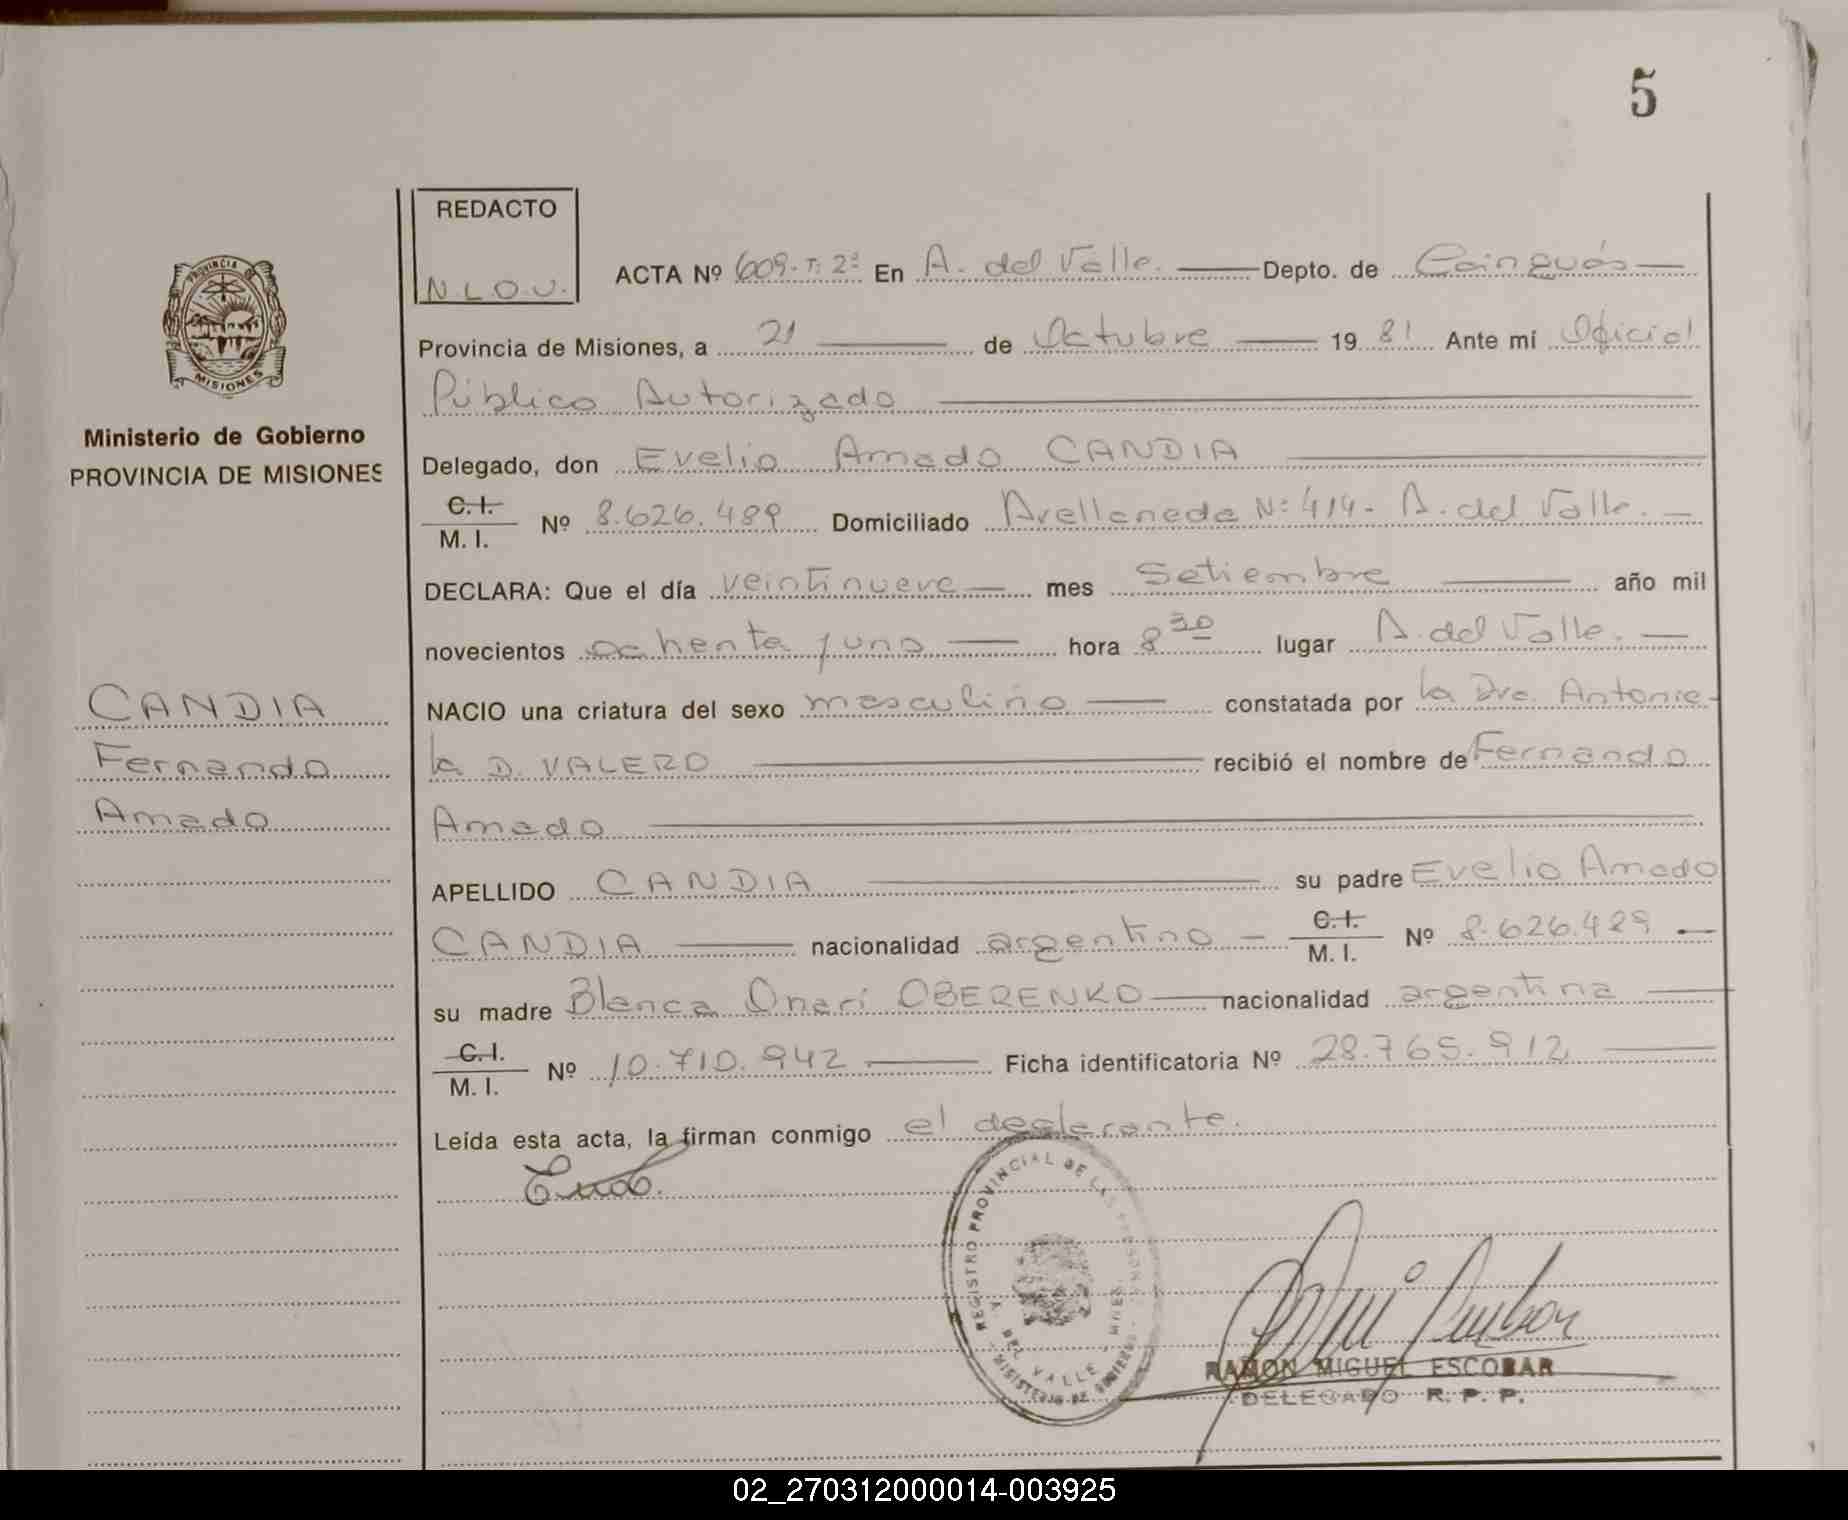 5
REDACTO
N.L.O.V.
ACTA Nº 609-T: 2º En A. del Valle. Depto. de Cainguás
Provincia de Misiones, a 21 de Octubre 19 81 Ante mí Oficial
Público Autorizado
Delegado, don Evelio Amado CANDIA
C. I.
M. I. Nº 8.626.489 Domiciliado Avellaneda Nº 414- A. del Valle.
DECLARA: Que el día veintinueve mes Setiembre año mil
novecientos ochenta y uno hora 8 30 lugar A. del Valle.
NACIO una criatura del sexo masculino constatada por la Dra. Antonie-
la D. VALERO recibió el nombre de Fernando
Amado
APELLIDO CANDIA su padre Evelio Amado
CANDIA nacionalidad argentino C. I.
M. I. Nº 8.626.489
su madre Blanca Onari OBERENKO nacionalidad argentina
C. I.
M. I. Nº 10.710.942 Ficha identificatoria Nº 28.765.912
Leída esta acta, la firman conmigo el declarante.
PROVINCIA DE
MISIONES
Ministerio de Gobierno
PROVINCIA DE MISIONES
CANDIA
Fernando
Amado
REGISTRO PROVINCIAL DE LAS PERSONAS
A. DEL VALLE - MNES.
MINISTERIO DE GOBIERNO
RAMON MIGUEL ESCOBAR
DELEGADO R. P. P.
02_270312000014-003925